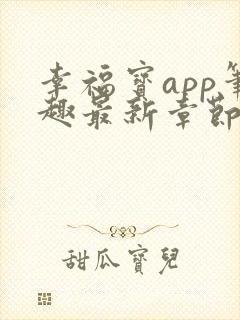 幸福寶app筆
趣最新章節
甜瓜寶兒